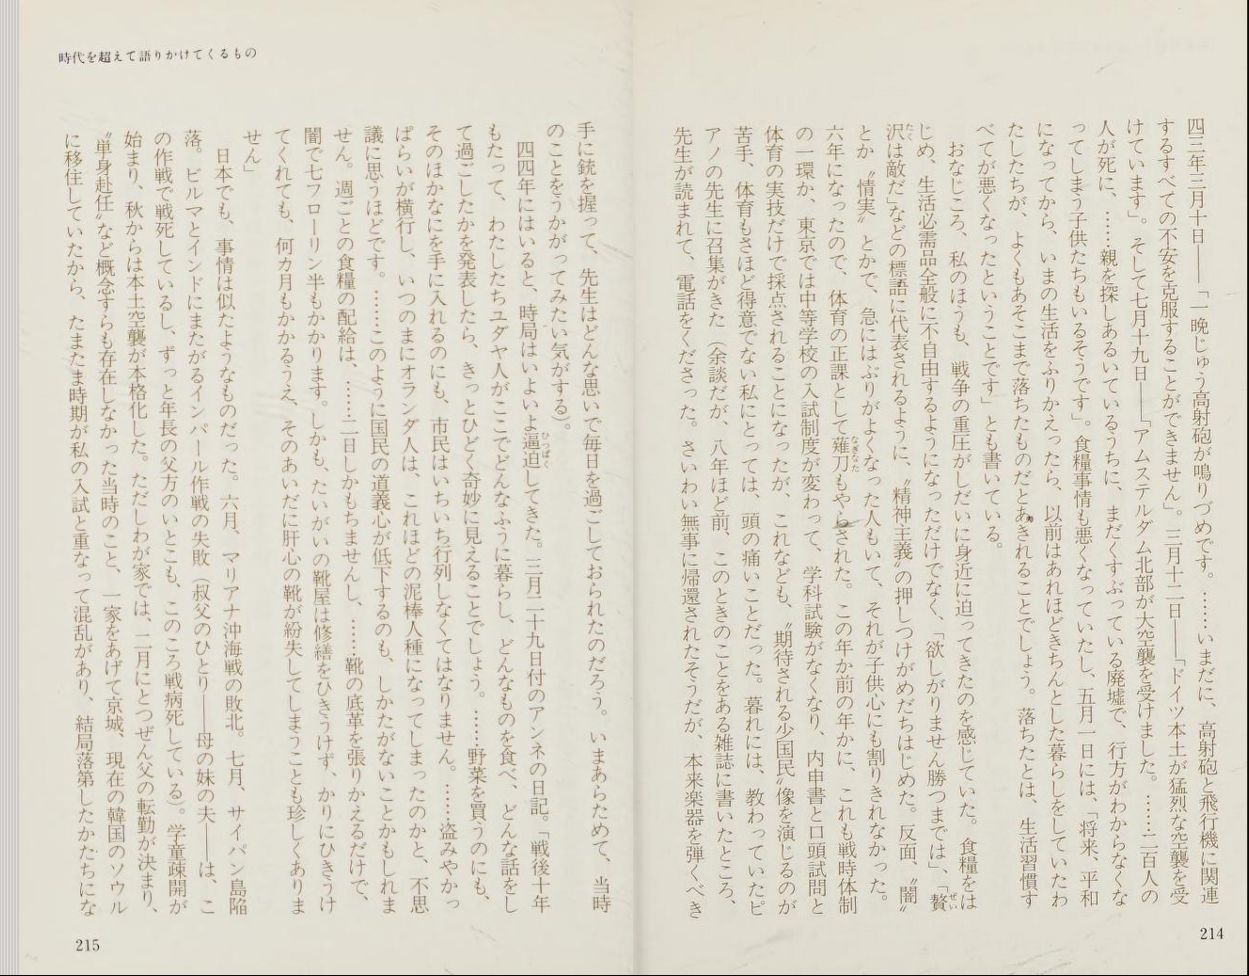 四三年三月十日――「一晩じゅう高射砲が鳴りづめです。……いまだに、高射砲と飛行機に関連
するすべての不安を克服することができません」。三月十二日――「ドイツ本土が猛烈な空襲を受
けています」。そして七月十九日――「アムステルダム北部が大空襲を受けました。……二百人の
人が死に、……親を探しあるいているうちに、まだくすぶっている廃墟で、行方がわからなくな
ってしまう子供たちもいるそうです」。食糧事情も悪くなっていたし、五月一日には、「将来、平和
になってから、いまの生活をふりかえったら、以前はあれほどきちんとした暮らしをしていたわ
たしたちが、よくもあそこまで落ちたものだとあきれることでしょう。落ちたとは、生活習慣す
べてが悪くなったということです」とも書いている。
おなじころ、私のほうも、戦争の重圧がしだいに身近に迫ってきたのを感じていた。食糧をは
じめ、生活必需品全般に不自由するようになっただけでなく、「欲しがりません勝つまでは」、「贅
沢は敵だ」などの標語に代表されるように、〝精神主義〟の押しつけがめだちはじめた。反面、〝闇〟
とか〝情実〟とかで、急にはぶりがよくなった人もいて、それが子供心にも割りきれなかった。
六年になったので、体育の正課として薙刀もやらされた。この年か前の年かに、これも戦時体制
の一環か、東京では中等学校の入試制度が変わって、学科試験がなくなり、内申書と口頭試問と
体育の実技だけで採点されることになったが、これなども、〝期待される少国民〟像を演じるのが
苦手、体育もさほど得意でない私にとっては、頭の痛いことだった。暮れには、教わっていたピ
アノの先生に召集がきた（余談だが、八年ほど前、このときのことをある雑誌に書いたところ、
先生が読まれて、電話をくださった。さいわい無事に帰還されたそうだが、本来楽器を弾くべき
214
時代を超えて語りかけてくるもの
手に銃を握って、先生はどんな思いで毎日を過ごしておられたのだろう。いまあらためて、当時
のことをうかがってみたい気がする）。
四四年にはいると、時局はいよいよ逼迫してきた。三月二十九日付のアンネの日記。「戦後十年
もたって、わたしたちユダヤ人がここでどんなふうに暮らし、どんなものを食べ、どんな話をし
て過ごしたかを発表したら、きっとひどく奇妙に見えることでしょう。……野菜を買うのにも、
そのほかなにを手に入れるのにも、市民はいちいち行列しなくてはなりません。……盗みやかっ
ぱらいが横行し、いつのまにオランダ人は、これほどの泥棒人種になってしまったのかと、不思
議に思うほどです。……このように国民の道義心が低下するのも、しかたがないことかもしれま
せん。週ごとの食糧の配給は、……二日しかもちませんし、……靴の底革を張りかえるだけで、
闇で七フローリン半もかかります。しかも、たいがいの靴屋は修繕をひきうけず、かりにひきうけ
てくれても、何カ月もかかるうえ、そのあいだに肝心の靴が紛失してしまうことも珍しくありま
せん」
日本でも、事情は似たようなものだった。六月、マリアナ沖海戦の敗北。七月、サイパン島陥
落。ビルマとインドにまたがるインパール作戦の失敗（叔父のひとり――母の妹の夫――は、こ
の作戦で戦死しているし、ずっと年長の父方のいとこも、このころ戦病死している）。学童疎開が
始まり、秋からは本土空襲が本格化した。ただしわが家では、二月にとつぜん父の転勤が決まり、
〝単身赴任〟など概念すらも存在しなかった当時のこと、一家をあげて京城、現在の韓国のソウル
に移住していたから、たまたま時期が私の入試と重なって混乱があり、結局落第したかたちにな
215